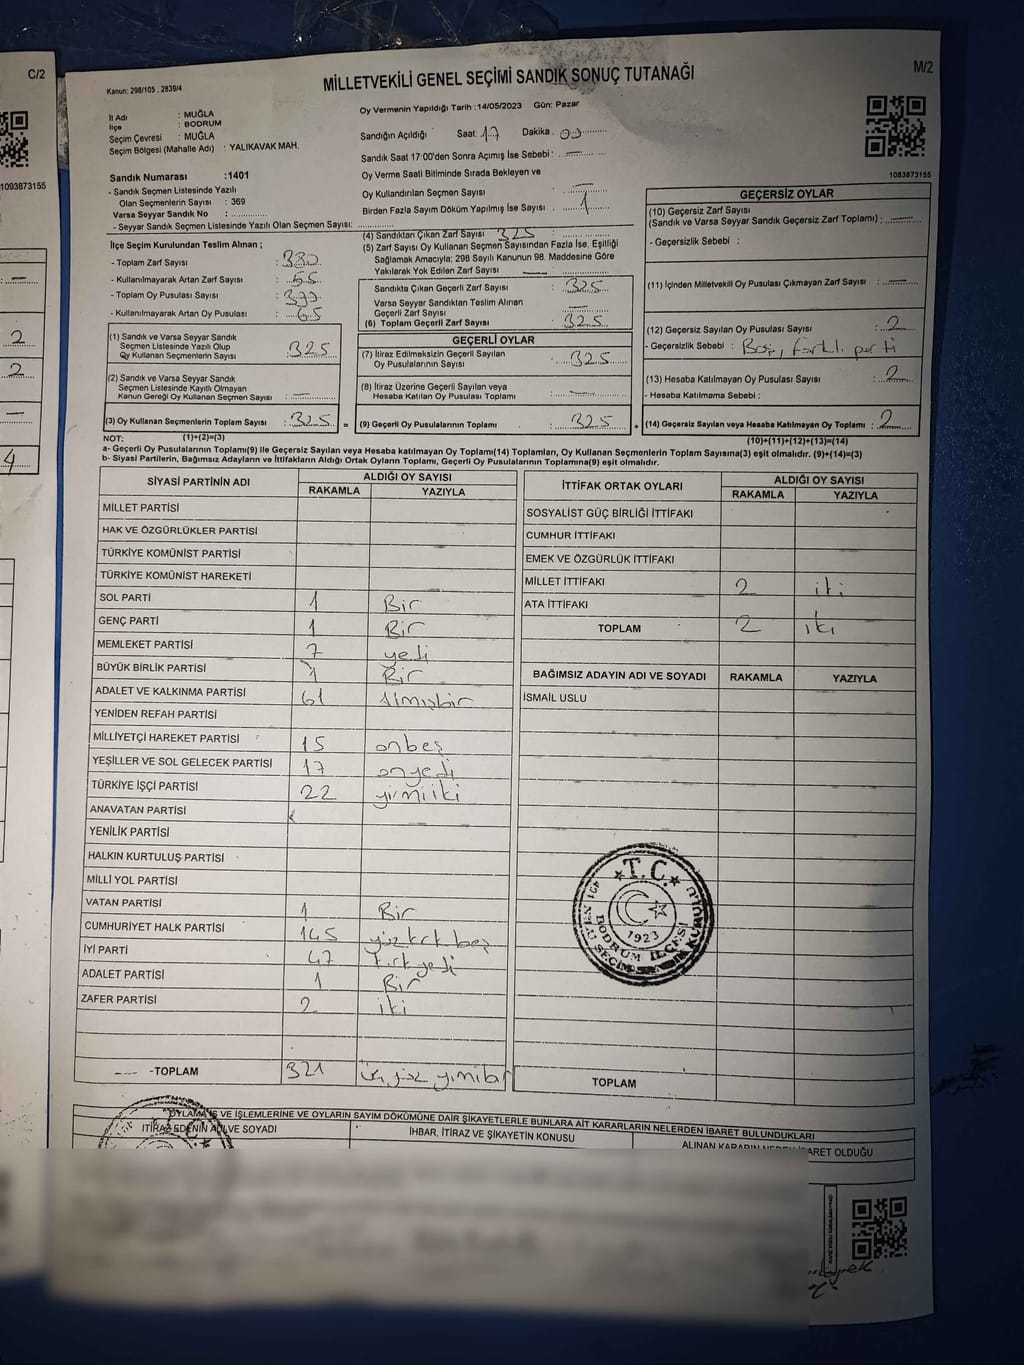 C/2
1093873155
2
2
4
Kanun: 298/105 , 2839/4
MİLLETVEKİLİ GENEL SEÇİMİ SANDIK SONUÇ TUTANAĞI
M/2
İl Adı : MUĞLA
İlçe : BODRUM
Seçim Çevresi : MUĞLA
Seçim Bölgesi (Mahalle Adı) : YALIKAVAK MAH.
Oy Vermenin Yapıldığı Tarih :14/05/2023 Gün: Pazar
Sandığın Açıldığı Saat: 17 Dakika . 00
Sandık Saat 17:00'den Sonra Açımış İse Sebebi :
Oy Verme Saati Bitiminde Sırada Bekleyen ve
Oy Kullandırılan Seçmen Sayısı
Birden Fazla Sayım Döküm Yapılmış İse Sayısı . 1
1083873155
Sandık Numarası :1401
- Sandık Seçmen Listesinde Yazılı
Olan Seçmenlerin Sayısı : 369
Varsa Seyyar Sandık No :
- Seyyar Sandık Seçmen Listesinde Yazılı Olan Seçmen Sayısı:
İlçe Seçim Kurulundan Teslim Alınan ;
- Toplam Zarf Sayısı : 380
- Kullanılmayarak Artan Zarf Sayısı : 55
- Toplam Oy Pusulası Sayısı :
- Kullanılmayarak Artan Oy Pusulası : 65
(1) Sandık ve Varsa Seyyar Sandık
Seçmen Listesinde Yazılı Olup
Oy Kullanan Seçmenlerin Sayısı : 325
(2) Sandık ve Varsa Seyyar Sandık
Seçmen Listesinde Kayıtlı Olmayan
Kanun Gereği Oy Kullanan Seçmen Sayısı :
(3) Oy Kullanan Seçmenlerin Toplam Sayısı : 325 =
(4) Sandıktan Çıkan Zarf Sayısı 325
(5) Zarf Sayısı Oy Kullanan Seçmen Sayısından Fazla İse. Eşitliği
Sağlamak Amacıyla; 298 Sayılı Kanunun 98. Maddesine Göre
Yakılarak Yok Edilen Zarf Sayısı
Sandıkta Çıkan Geçerli Zarf Sayısı : 325
Varsa Seyyar Sandıktan Teslim Alınan
Geçerli Zarf Sayısı
(6) Toplam Geçerli Zarf Sayısı : 325
GEÇERLİ OYLAR
(7) İtiraz Edilmeksizin Geçerli Sayılan
Oy Pusulalarının Sayısı : 325
(8) İtiraz Üzerine Geçerli Sayılan veya
Hesaba Katılan Oy Pusulası Toplamı :
(9) Geçerli Oy Pusulalarının Toplamı : 325 +
GEÇERSİZ OYLAR
(10) Geçersiz Zarf Sayısı
(Sandık ve Varsa Seyyar Sandık Geçersiz Zarf Toplamı) :
- Geçersizlik Sebebi :
(11) İçinden Milletvekili Oy Pusulası Çıkmayan Zarf Sayısı :
(12) Geçersiz Sayılan Oy Pusulası Sayısı : 2
- Geçersizlik Sebebi : Boş, farklı parti
(13) Hesaba Katılmayan Oy Pusulası Sayısı : 2
- Hesaba Katılmama Sebebi :
(14) Geçersiz Sayılan veya Hesaba Katılmayan Oy Toplamı : 2
NOT: (1)+(2)=(3)
(10)+(11)+(12)+(13)=(14)
a- Geçerli Oy Pusulalarının Toplamı(9) ile Geçersiz Sayılan veya Hesaba Katılmayan Oy Toplamı(14) Toplamları, Oy Kullanan Seçmenlerin Toplam Sayısına(3) eşit olmalıdır. (9)+(14)=(3)
b- Siyasi Partilerin, Bağımsız Adayların ve İttifakların Aldığı Ortak Oyların Toplamı, Geçerli Oy Pusulalarının Toplamına(9) eşit olmalıdır.
SİYASİ PARTİNİN ADI ALDIĞI OY SAYISI
RAKAMLA YAZIYLA
MİLLET PARTİSİ
HAK VE ÖZGÜRLÜKLER PARTİSİ
TÜRKİYE KOMÜNİST PARTİSİ
TÜRKİYE KOMÜNİST HAREKETİ
SOL PARTİ 1 Bir
GENÇ PARTİ 1 Bir
MEMLEKET PARTİSİ 7 yedi
BÜYÜK BİRLİK PARTİSİ 1 Bir
ADALET VE KALKINMA PARTİSİ 61 Altmışbir
YENİDEN REFAH PARTİSİ
MİLLİYETÇİ HAREKET PARTİSİ 15 onbeş
YEŞİLLER VE SOL GELECEK PARTİSİ 17 onyedi
TÜRKİYE İŞÇİ PARTİSİ 22 yirmiiki
ANAVATAN PARTİSİ
YENİLİK PARTİSİ
HALKIN KURTULUŞ PARTİSİ
MİLLİ YOL PARTİSİ
VATAN PARTİSİ 1 Bir
CUMHURİYET HALK PARTİSİ 145 yüzkırkbeş
İYİ PARTİ 47 kırkyedi
ADALET PARTİSİ 1 Bir
ZAFER PARTİSİ 2 iki
-TOPLAM 321 üçyüz yirmibir
İTTİFAK ORTAK OYLARI ALDIĞI OY SAYISI
RAKAMLA YAZIYLA
SOSYALİST GÜÇ BİRLİĞİ İTTİFAKI
CUMHUR İTTİFAKI
EMEK VE ÖZGÜRLÜK İTTİFAKI
MİLLET İTTİFAKI 2 iki
ATA İTTİFAKI
TOPLAM 2 iki
BAĞIMSIZ ADAYIN ADI VE SOYADI RAKAMLA YAZIYLA
İSMAİL USLU
T.C.
1923
BODRUM İLÇESİ
SEÇİM SANDIK KURULU
TOPLAM
OYLAMA İŞ VE İŞLEMLERİNE VE OYLARIN SAYIM DÖKÜMÜNE DAİR ŞİKAYETLERLE BUNLARA AİT KARARLARIN NELERDEN İBARET BULUNDUKLARI
İTİRAZ EDENİN ADI VE SOYADI İHBAR, İTİRAZ VE ŞİKAYETİN KONUSU ALINAN KARARIN NEDEN İBARET OLDUĞU